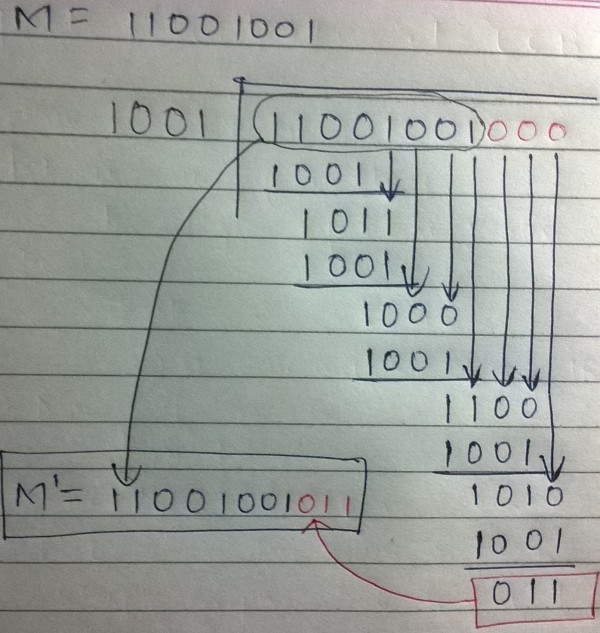 M = 11001001
1001 11001001000
1001
1011
1001
1000
1001
1100
1001
M' = 11001001011 1010
1001
011